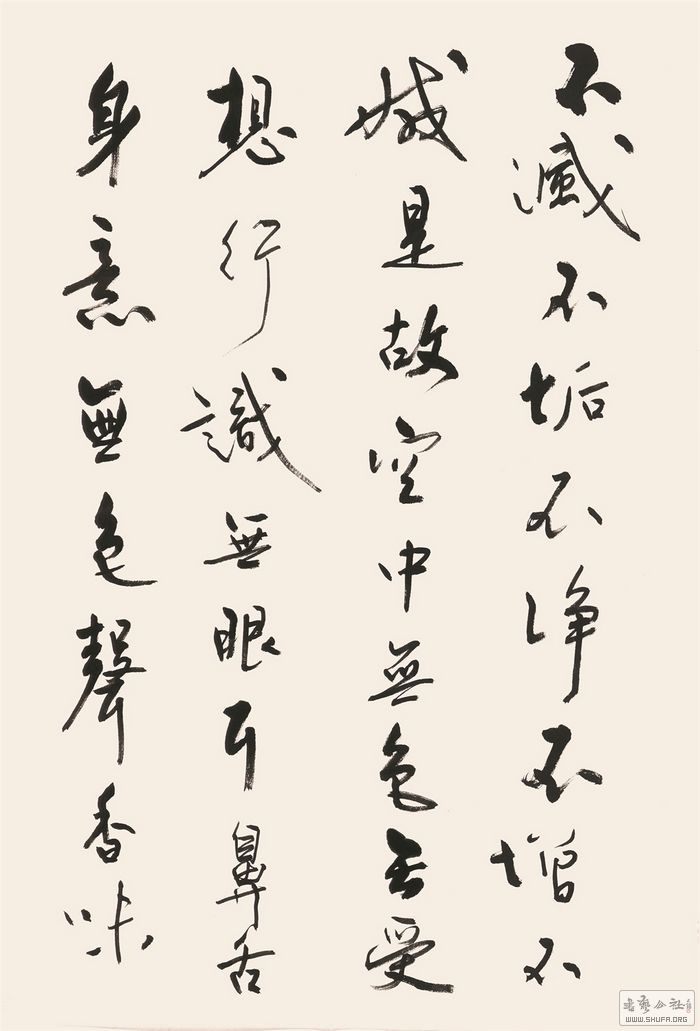 不滅不垢不净不增不
減是故空中無色无受
想行識無眼耳鼻舌
身意無色聲香味
書藝公社
WWW.SHUFA.ORG